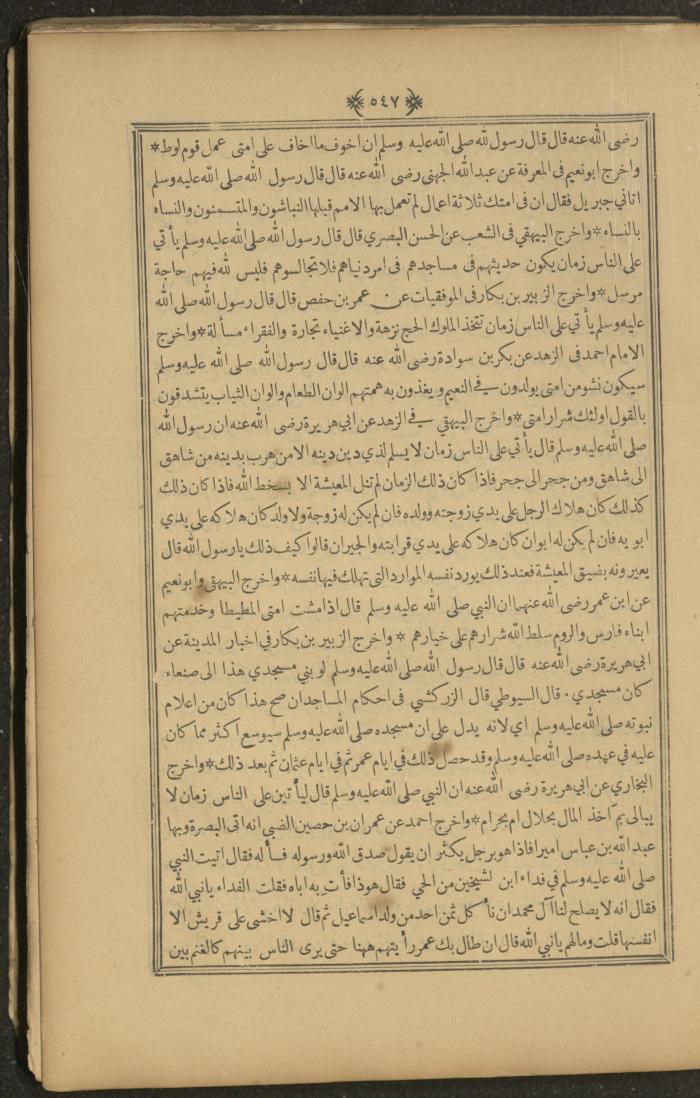 ٥٤٧
رضى الله عنه قال قال رسول لله صلى الله عليه وسلم ان اخوف ما اخاف على امتى عمل قوم لوط*
واخرج ابو نعيم فى المعرفة عن عبد الله الجهنى رضى الله عنه قال قال رسول الله صلى الله عليه وسلم
اتاني جبريل فقال ان فى امتك ثلاثة اعمال لم تعمل بها الامم قبلها النباشون والمتسمنون والنساء
بالنساء*واخرج البيهقي فى الشعب عن الحسن البصري قال قال رسول الله صلى الله عليه وسلم يأتي
على الناس زمان يكون حديثهم فى مساجدهم فى امر دنياهم فلا تجالسوهم فليس لله فيهم حاجة
مرسل*واخرج الزبير بن بكار فى الموفقيات عن عمر بن حفص قال قال رسول الله صلى الله
عليه وسلم يأتي على الناس زمان تتخذ الملوك الحج نزهة والاغنياء تجارة والفقراء مسألة*واخرج
الامام احمد فى الزهد عن بكر بن سوادة رضى الله عنه قال قال رسول الله صلى الله عليه وسلم
سيكون نشو من امتى يولدون في النعيم ويغذون به همتهم الوان الطعام والوان الثياب يتشدقون
بالقول اولئك شرار امتى*واخرج البيهقي في الزهد عن ابي هريرة رضى الله عنه ان رسول الله
صلى الله عليه وسلم قال يأتي على الناس زمان لا يسلم لذي دين دينه الا من هرب بدينه من شاهق
الى شاهق ومن جحر الى جحر فاذا كان ذلك الزمان لم تنل المعيشة الا بسخط الله فاذا كان ذلك
كذلك كان هلاك الرجل على يدي زوجته وولده فان لم يكن له زوجة ولا ولد كان هلاكه على يدي
ابويه فان لم يكن له ابوان كان هلاكه على يدي قرابته والجيران قالوا كيف ذلك يارسول الله قال
يعيرونه بضيق المعيشة فعند ذلك يورد نفسه الموارد التى تهلك فيها نفسه*واخرج البيهقى وابو نعيم
عن ابن عمر رضى الله عنهما ان النبي صلى الله عليه وسلم قال اذا مشت امتى المطيطا وخدمتهم
ابناء فارس والروم سلط الله شرارهم على خيارهم * واخرج الزبير بن بكار في اخبار المدينة عن
ابي هريرة رضى الله عنه قال قال رسول الله صلى الله عليه وسلم لو بني مسجدي هذا الى صنعاء
كان مسجدي · قال السيوطي قال الزركشي فى احكام المساجد ان صح هذا كان من اعلام
نبوته صلى الله عليه وسلم اى لانه يدل على ان مسجده صلى الله عليه وسلم سيوسع اكثر مما كان
عليه في عهده صلى الله عليه وسلم وقد حصل ذلك في ايام عمر ثم في ايام عثمان ثم بعد ذلك*واخرج
البخاري عن ابي هريرة رضى الله عنه ان النبي صلى الله عليه وسلم قال ليأتين على الناس زمان لا
يبالى بم آخذ المال بحلال ام بحرام*واخرج احمد عن عمران بن حصين الضبي انه اتى البصرة وبها
عبد الله بن عباس امير افاذا هو برجل يكثر ان يقول صدق الله ورسوله فسأله فقال اتيت النبي
صلى الله عليه وسلم في فداء ابن لشيخين من الحي فقال هوذا فأت به اباه فقلت الفداء يانبي الله
فقال انه لا يصلح لنا آل محمد ان نأ كل ثمن احد من ولد اسماعيل ثم قال لا اخشى على قريش الا
انفسها قلت ومالهم يانبي الله قال ان طال بك عمر رأيتهم ههنا حتى يرى الناس بينهم كالغنم بين